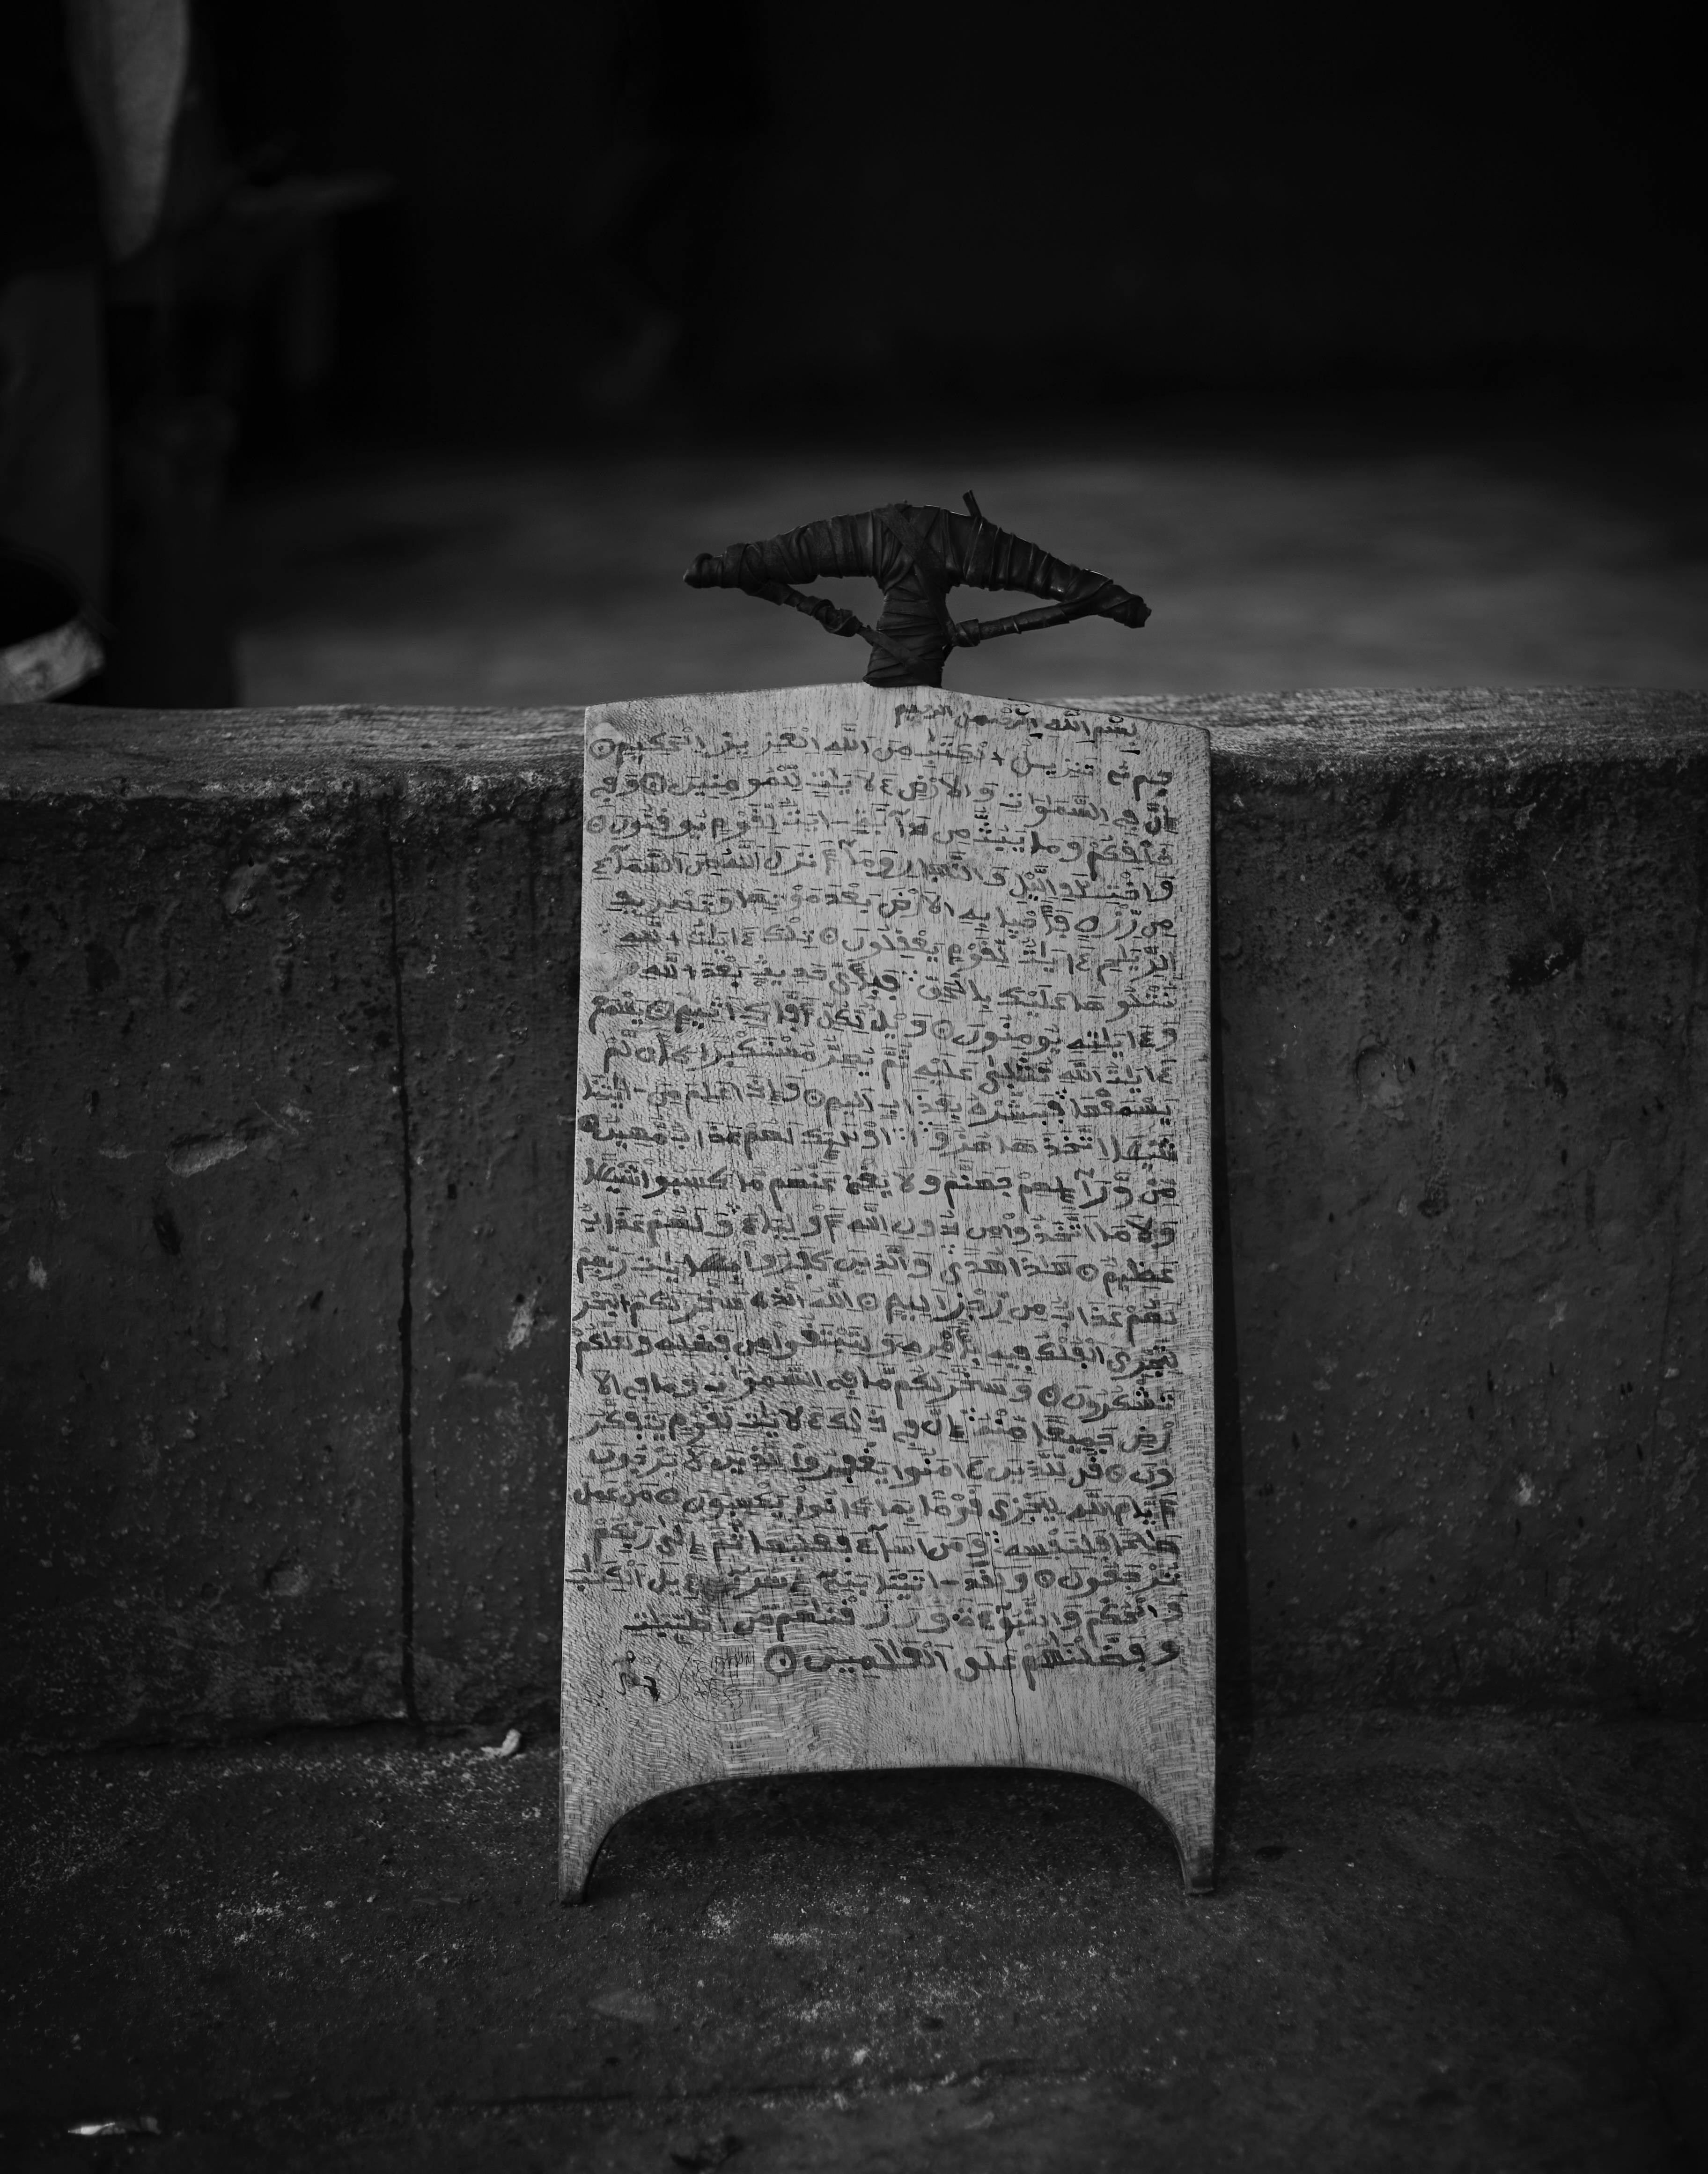 بسم الله الرحمن الرحيم
حم تنزيل الكتب من الله العزيز الحكيم
إن في السموات والارض ءلايت للمومنين وفي
خلقكم وما يبث من دآبة ايت لقوم يوقنون
واختلف اليل والنهار وما أنزل الله من السمآء
من رزق فأحيا به الارض بعد موتها وتصريف
الريح ءايت لقوم يعقلون تلك ءايت الله
نتلوها عليك بالحق فبأي حديث بعد الله
وءايته يومنون ويل لكل أفاك اثيم يسمع
ءايت الله تتلى عليه ثم يصر مستكبرا كأن لم
يسمعها فبشره بعذاب اليم وإذا علم من ايتنا
شيئا اتخذها هزؤا اولئك لهم عذاب مهين
من ورآئهم جهنم ولا يغني عنهم ما كسبوا شيئا
ولا ما اتخذوا من دون الله أوليآء ولهم عذاب
عظيم هذا هدى والذين كفروا بئايت ربهم
لهم عذاب من رجز اليم الله الذي سخر لكم البحر
لتجري الفلك فيه بأمره ولتبتغوا من فضله ولعلكم
تشكرون وسخر لكم ما في السموات وما في الا
رض جميعا منه إن في ذلك ءلايت لقوم يتفكر
ون قل للذين ءامنوا يغفروا للذين لا يرجون
أيام الله ليجزي قوما بما كانوا يكسبون من عمل
صلحا فلنفسه ومن أسآء فعليها ثم إلى ربكم
ترجعون ولقد اتينا بني إسرآءيل الكتب
والحكم والنبوءة ورزقنهم من الطيبت
وفضلنهم على العلمين